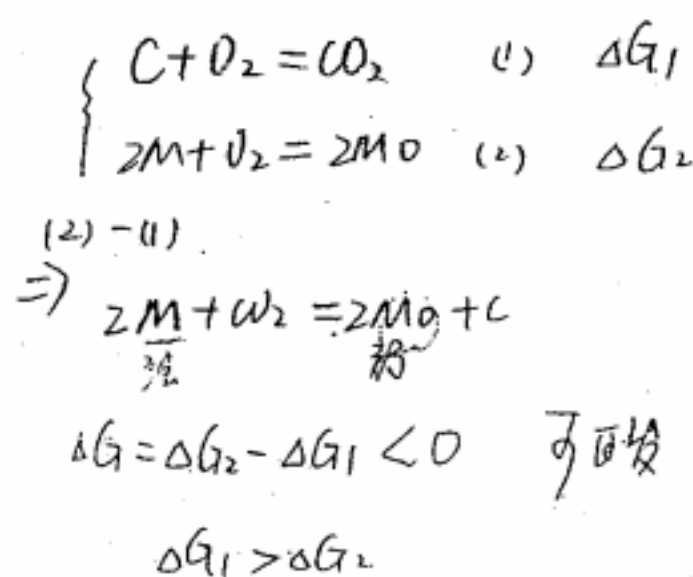 C+O₂=CO₂ (1) ΔG₁
2M+O₂=2MO (2) ΔG₂
(2)-(1)
⇒ 2M+CO₂=2MO+C
ΔG=ΔG₂-ΔG₁<0 可自发
ΔG₁>ΔG₂